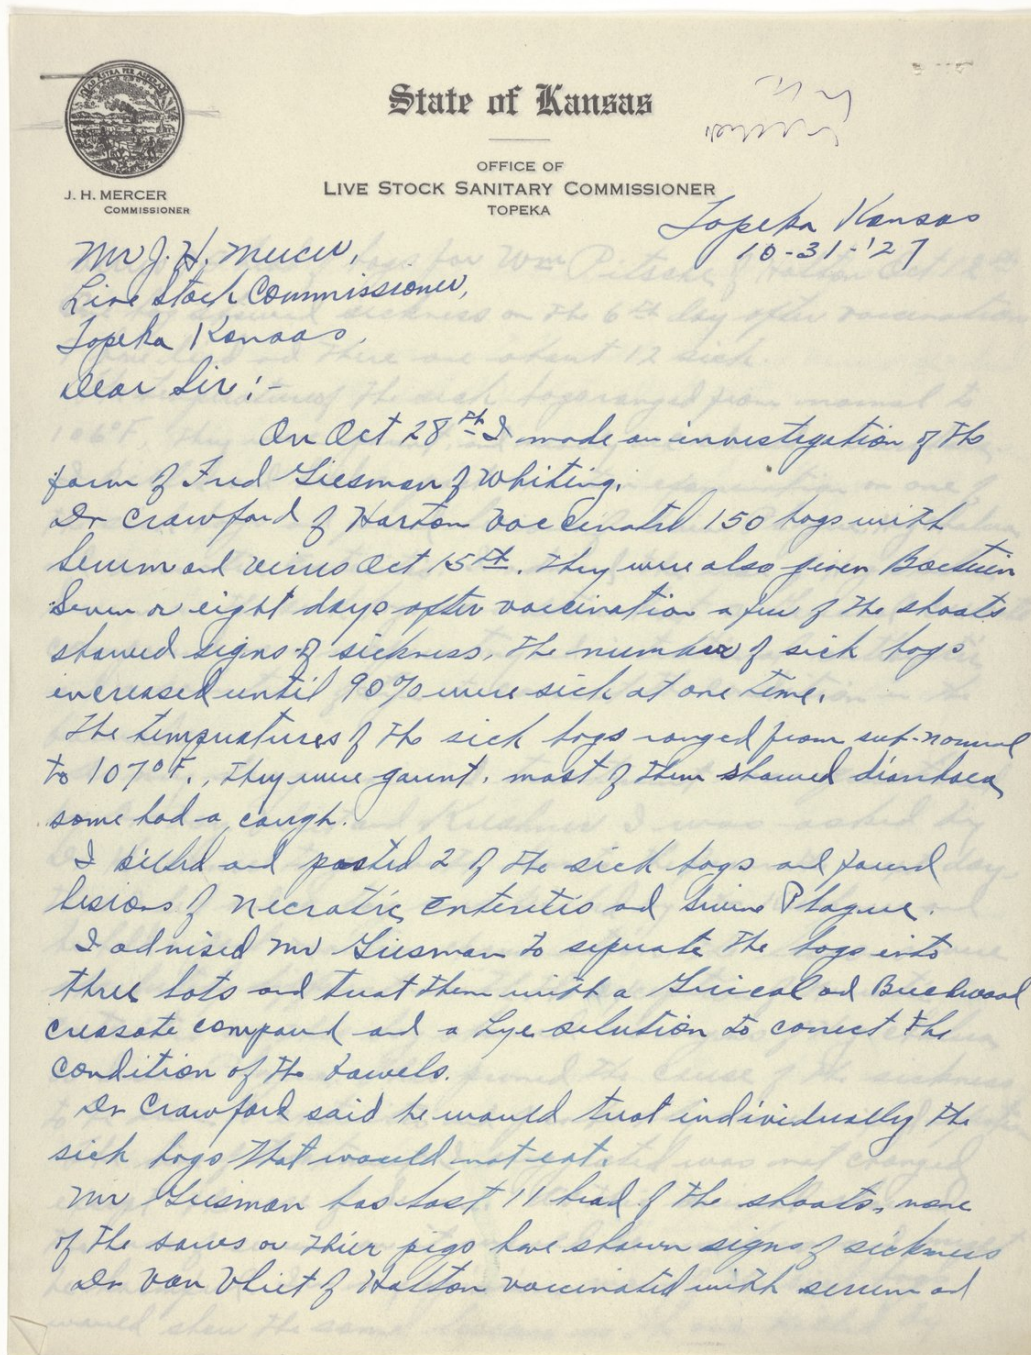 State of Kansas
OFFICE OF
LIVE STOCK SANITARY COMMISSIONER
TOPEKA
J. H. MERCER
COMMISSIONER
Topeka Kansas
10-31-'27
Mr J. H. Mercer,
Live Stock Commissioner,
Topeka Kansas,
Dear Sir:-
On Oct 28th I made an investigation of the
farm of Fred Giesman of Whiting.
Dr Crawford of Horton vaccinated 150 hogs with
serum and virus Oct 15th. They were also given Bacterin
Seven or eight days after vaccination a few of the shoats
showed signs of sickness. The number of sick hogs
increased until 90% were sick at one time.
The tempratures of the sick hogs ranged from sub-normal
to 107°F., They were gaunt, most of them showed diarrhoea,
some had a cough.
I killed and posted 2 of the sick hogs and found
lesions of Necrotic Enteritis and Swine Plague.
I advised Mr Giesman to seperate the hogs into
three lots and treat them with a and Beechwood
creasote compound and a Lye solution to correct the
condition of the bowels.
Dr Crawford said he would treat individually the
sick hogs that would not eat.
Mr Giesman has lost 11 head of the shoats, none
of the sows or thier pigs have shown signs of sickness
Dr Van Vliet of Holton vaccinated with serum and